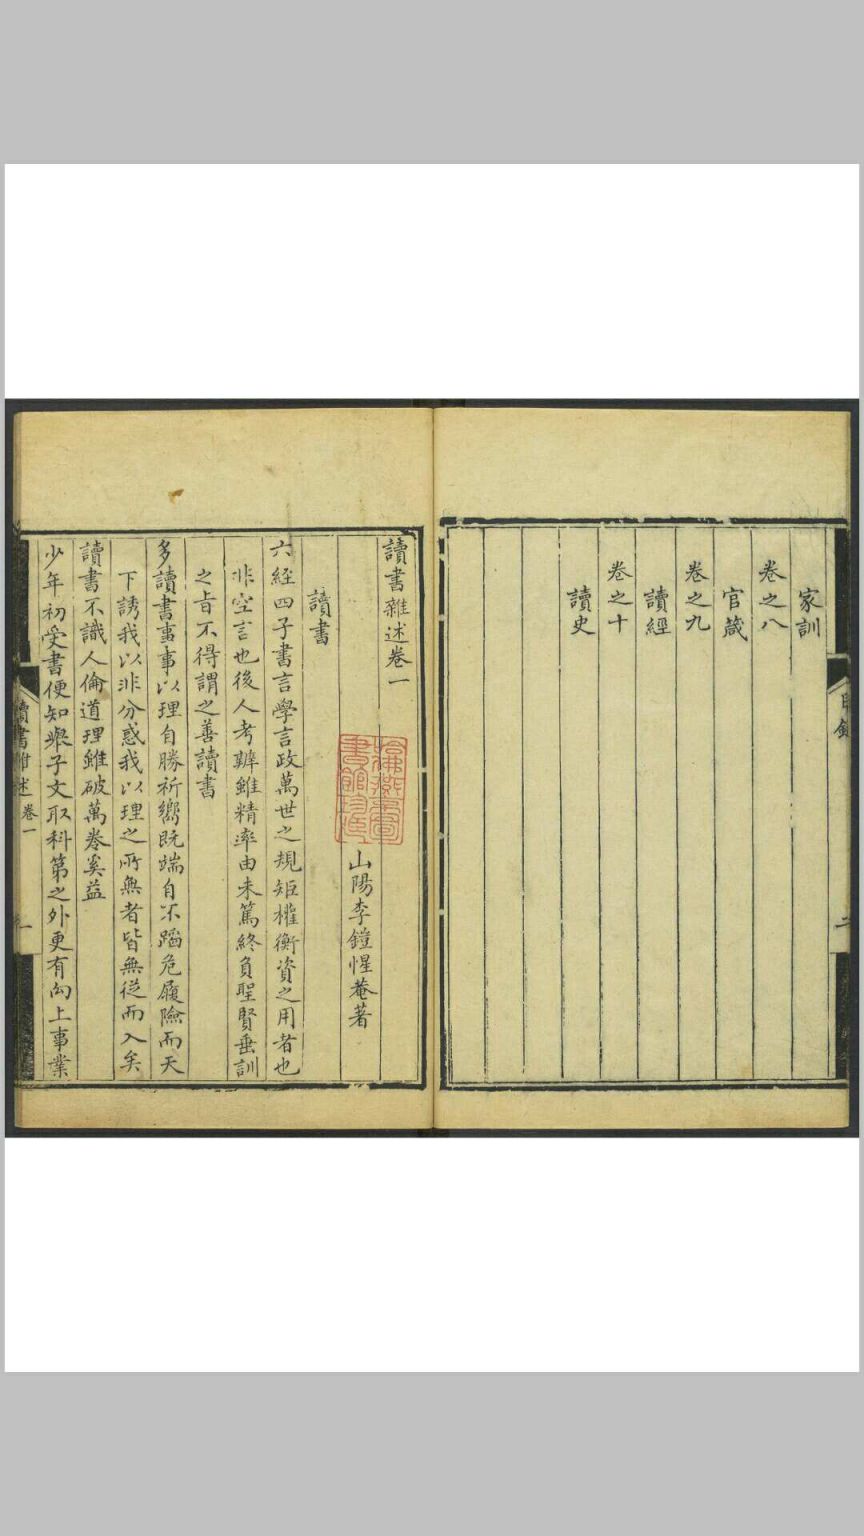 家訓
卷之八
官箴
卷之九
讀經
卷之十
讀史
讀書雜述卷一
山陽李鎧惺菴著
讀書
六經四子書言學言政萬世之規矩權衡資之用者也
非空言也後人考辨雖精率由未篤終負聖賢垂訓
之旨不得謂之善讀書
多讀書事事以理自勝祈嚮既端自不蹈危履險而天
下誘我以非分惑我以理之所無者皆無從而入矣
讀書不識人倫道理雖破萬卷奚益
少年初受書便知舉子文取科第之外更有向上事業
讀書雜述 卷一 一